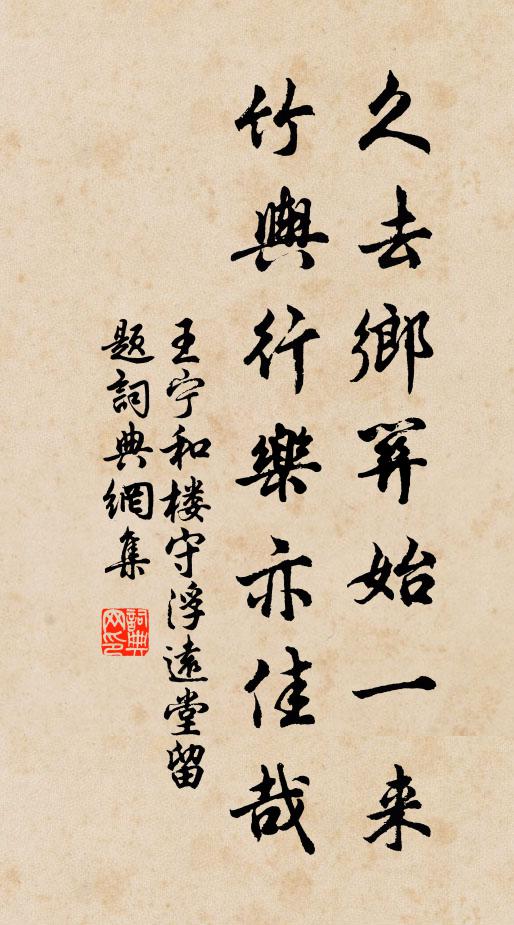 久去鄉關始一来
竹輿行樂亦佳哉
王宁和楼守浮遠堂留
題詞典網集
詞典网印